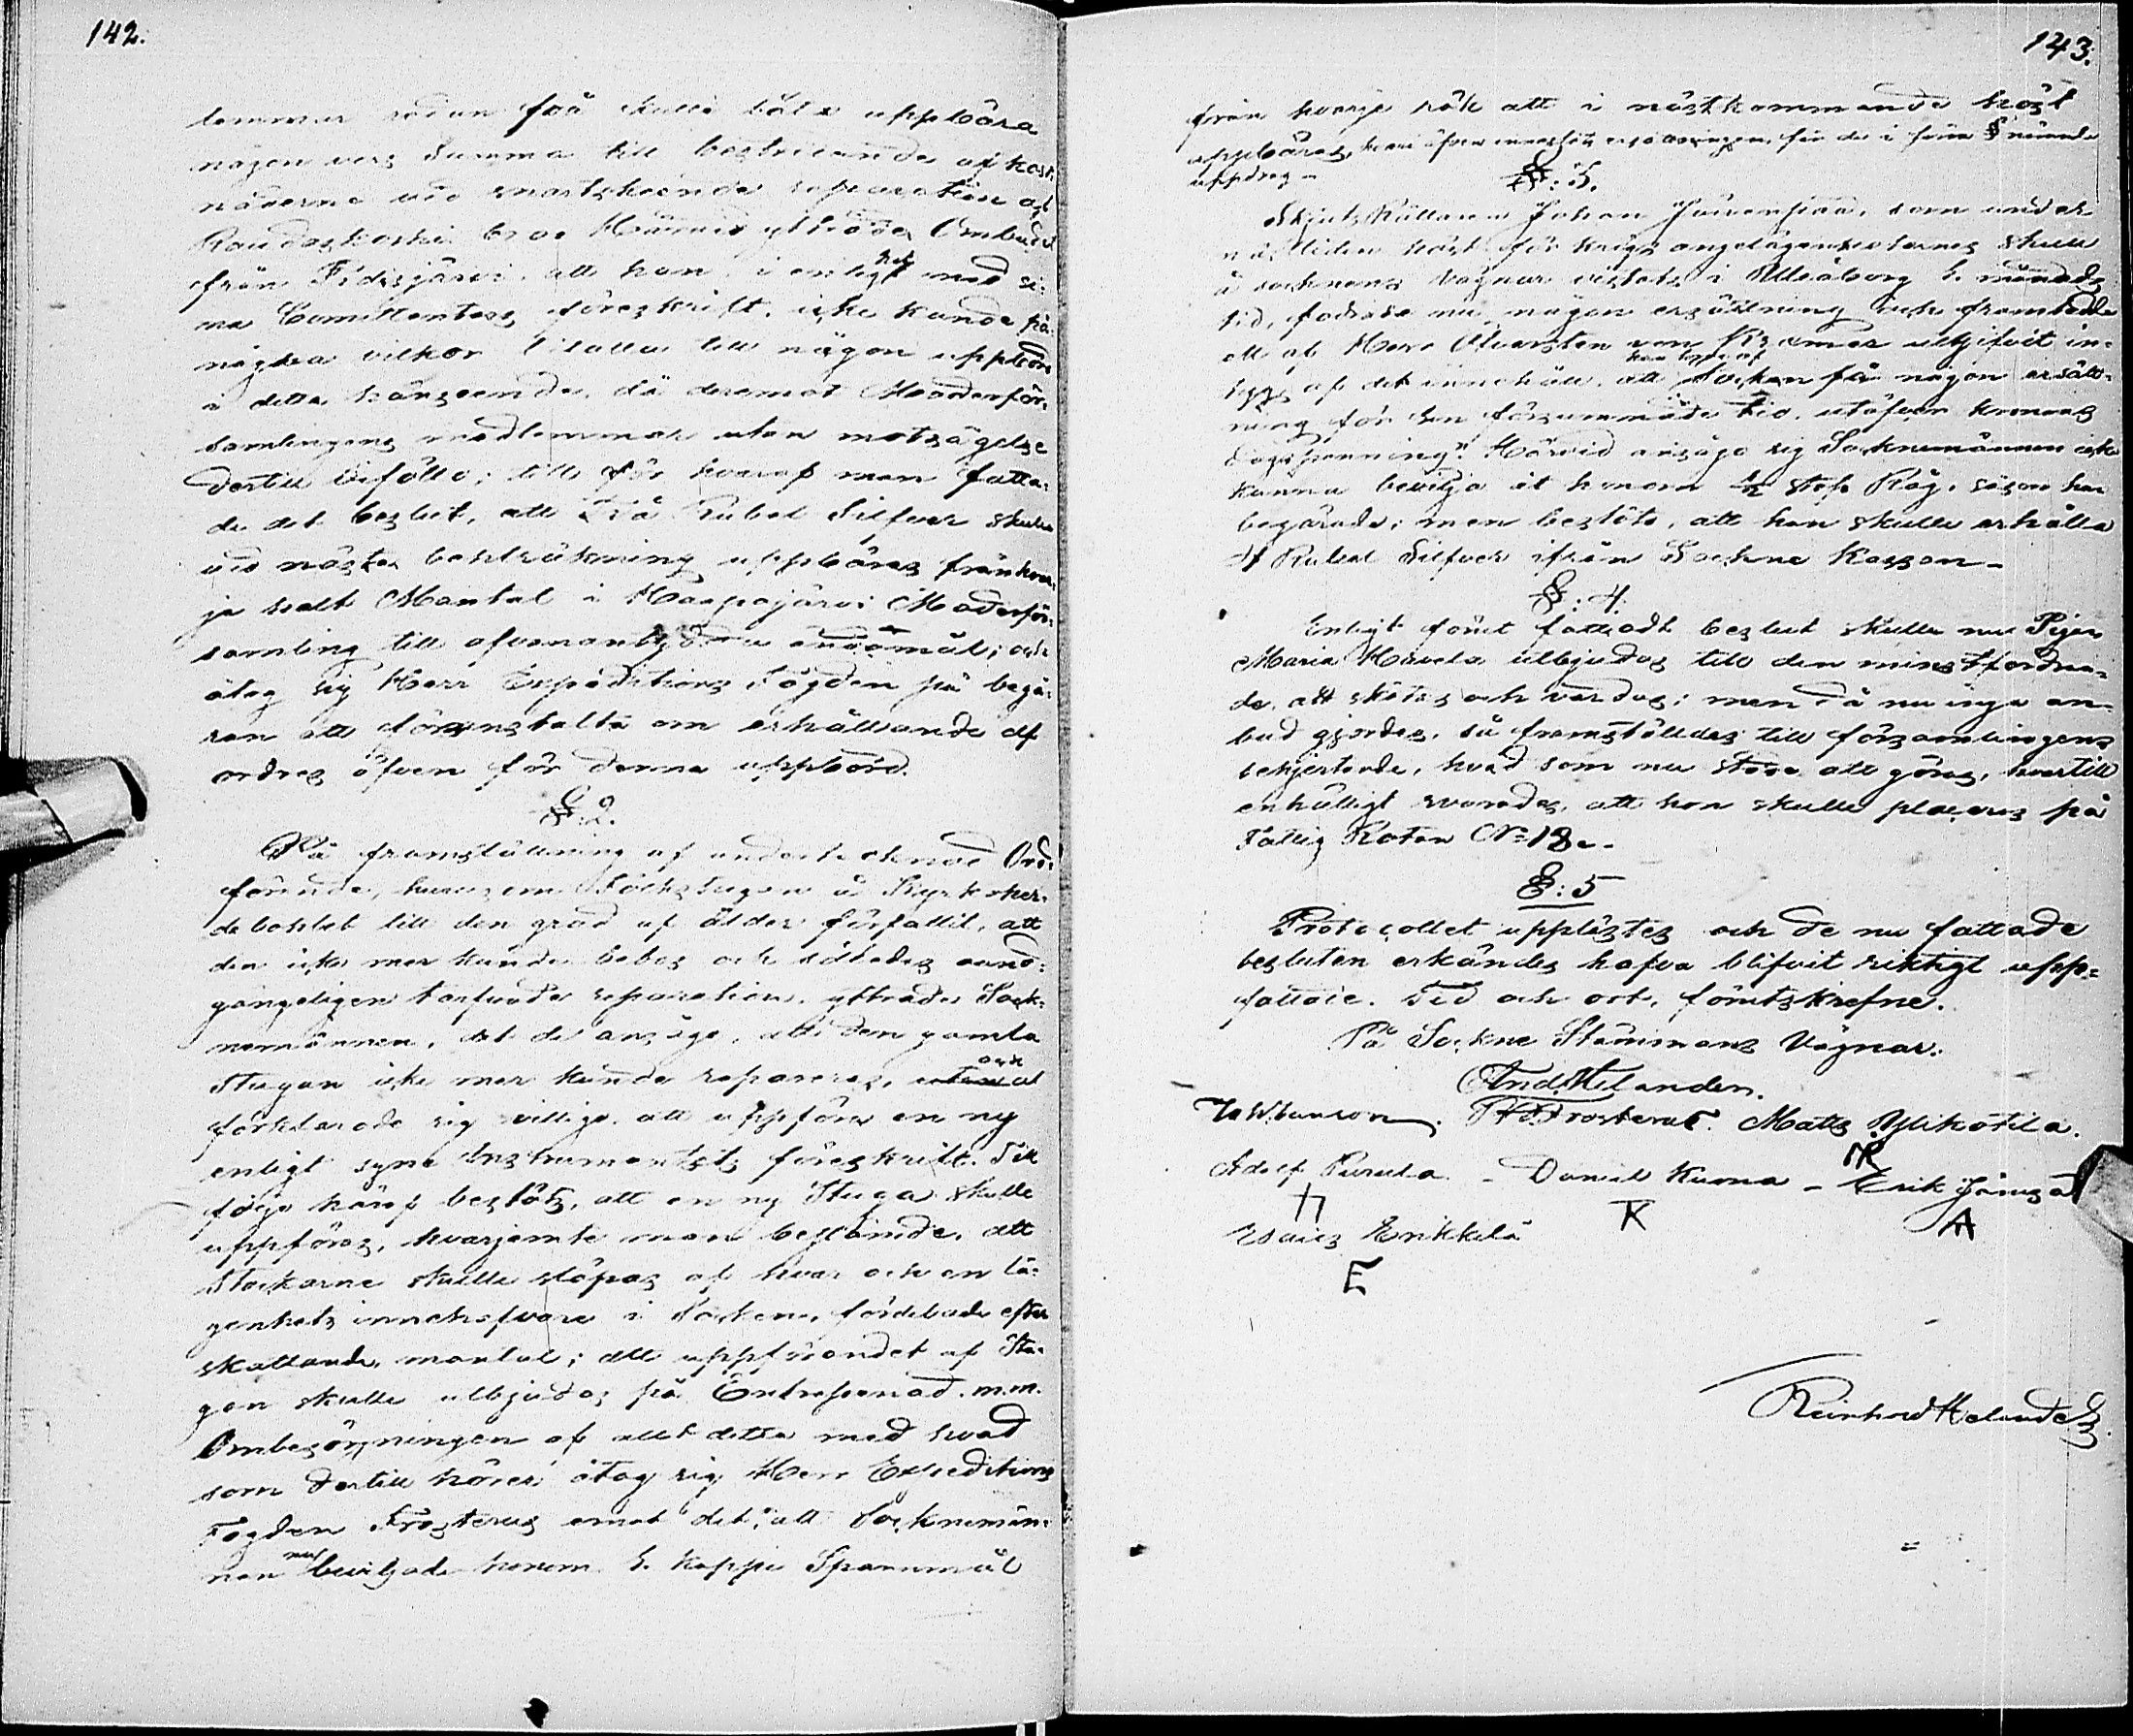 142.
lemmar sedan få skulle låta uppbära
någon viss Summa till bestridande af kost-
naderne vid snartskeende reparation af
Raudaskoski bro. Härvid yttrade Ombudet
från Pidisjärvi, att han i enlighet med si-
na Comittenters föreskrift, icke kunde på
några vilkor tillåta till någon uppbörd
i detta hänseende, då deremot Moderför-
samlingens medlemmar utan motsägelse
dertill biföllo; till följe hvaraf man fatta-
de det beslut, att Två Rubel Silfver skulle
vid nästa boksträkning uppbäras från hvar-
je helt Mantal i Haapajärvi Moderför-
samling till ofvannämnda ändamål; och
åtog sig Herr Expeditions Fogden på begä-
ran att föranstalta om erhållande af
ordres öfven för denna uppbörd.
§: 2.
På framställning af undertecknad Ord-
förande, hurusom Folkstugan å Kyrkoher-
debohlet till den grad af ålder förfallit, att
den icke mer kunde bebos och således ound-
gängeligen tarfvade reparation, yttrade Sock-
nemännen, det de ansågo, att den gamla
Stugan icke mer kunde repareras, och
förklarade sig villiga att uppföra en ny
enligt syne Instrumentets föreskrift. Till
följe häraf beslöts, att en ny Stuga skulle
uppföras, hvarjemte man bestämde, att
Stockarne skulle släpas af hvar och en lä-
genhets innehafvare i Socknen, fördelade efter
skattande mantal; att uppförandet af Stu-
gan skulle utbjudas på Entreprenad m.m.
Ombesörjningen af allt detta med hvad
som dertill hörer åtog sig Herr Expeditions
Fogden Frosterus emot det, att Socknemän-
nen nu beviljade honom 1. kappe Spannmål
143.
från hvarje rök att i nästkommande höst
uppbäras, hvari äfven innestår ersättningen för de i förra § nämnde
uppdrag –
§: 3.
Skjutsrättaren Johan Jouvenpää, som under
nästliden höst för krigs angelägenheternes skull
å socknens vägnar vistats i Uleåborg 1. månads
tid, fodrade nu någon ersättning och framtedde
ett af Herr Öfversten von Kræmer utgifvit in-
tyg af det innehåll, att Socken får någon ersätt-
ning för sin försummade tid, utöfver kronans
dagspenning". Härvid ansågo sig Socknemännen icke
kunna bevilja åt honom ½ stop Råg, såsom han
begärade; men beslöto, att han skulle erhålla
4 Rubel Silfver ifrån Sockne Kassan –
§: 4.
Enligt förut fattadt beslut skulle nu Pigan
Maria Havela utbjudas till den minstfordran-
de, att skötas och vårdas; men då nu inga an-
bud gjordes, så framställdes till församlingens
behjertande, hvad som nu stode att göras, hvartill
enhälligt svarades, att hon skulle placeras på
Fattig Roten N:o 18. –
§: 5
Protocollet upplästes och de nu fattade
besluten erkändes hafva blifvit riktigt upp-
fattade. Tid och ort, förutskrefne.
På Sockne Stämmans Vägnar.
And. Helander.
P H Frosterus. Matts Ylikotila.
Adolf Purula – Daniel Kuona – Erik Jämsä
Esaias Erikkilä
E K A
Reinhold Helander